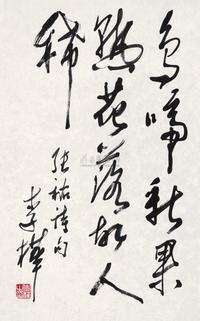 鸟啼新果
熟花落故人
稀
张祜诗句
李桦